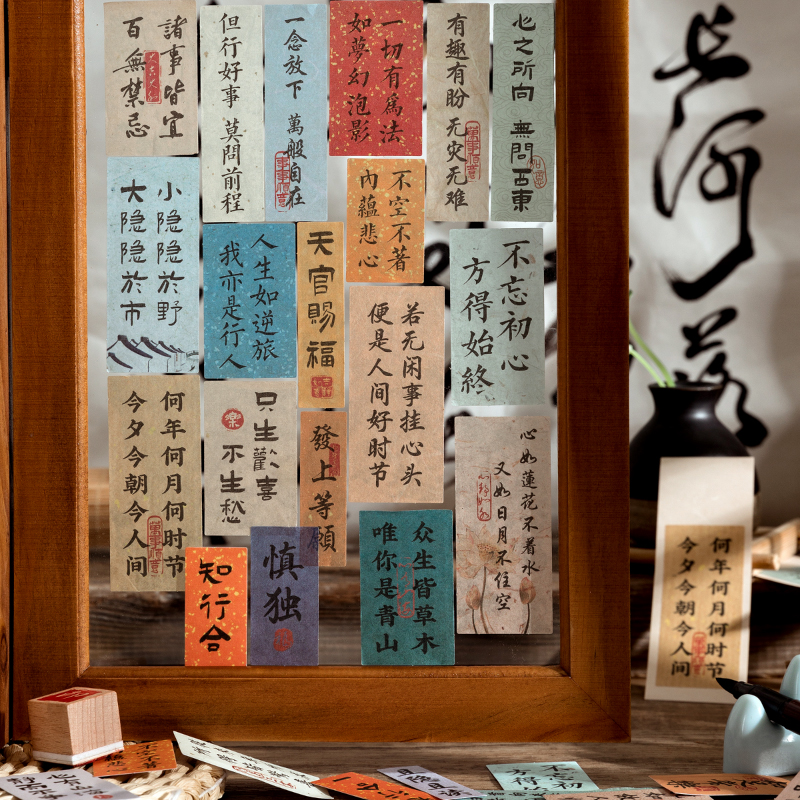 諸事皆宜
百無禁忌
但行好事 莫問前程
一念放下 萬般自在
一切有爲法
如夢幻泡影
有趣有盼 无灾无难
心之所向 無問西東
小隐隐於野
大隐隐於市
人生如逆旅
我亦是行人
天官賜福
不空不著
內蘊悲心
不忘初心
方得始終
若无闲事挂心头
便是人间好时节
何年何月何时节
今夕今朝今人间
只生歡喜
不生愁
樂
發上等願
心如蓮花不着水
又如日月不住空
知行合一
慎独
众生皆草木
唯你是青山
長河落
何年何月何时节
今夕今朝今人间
不忘初